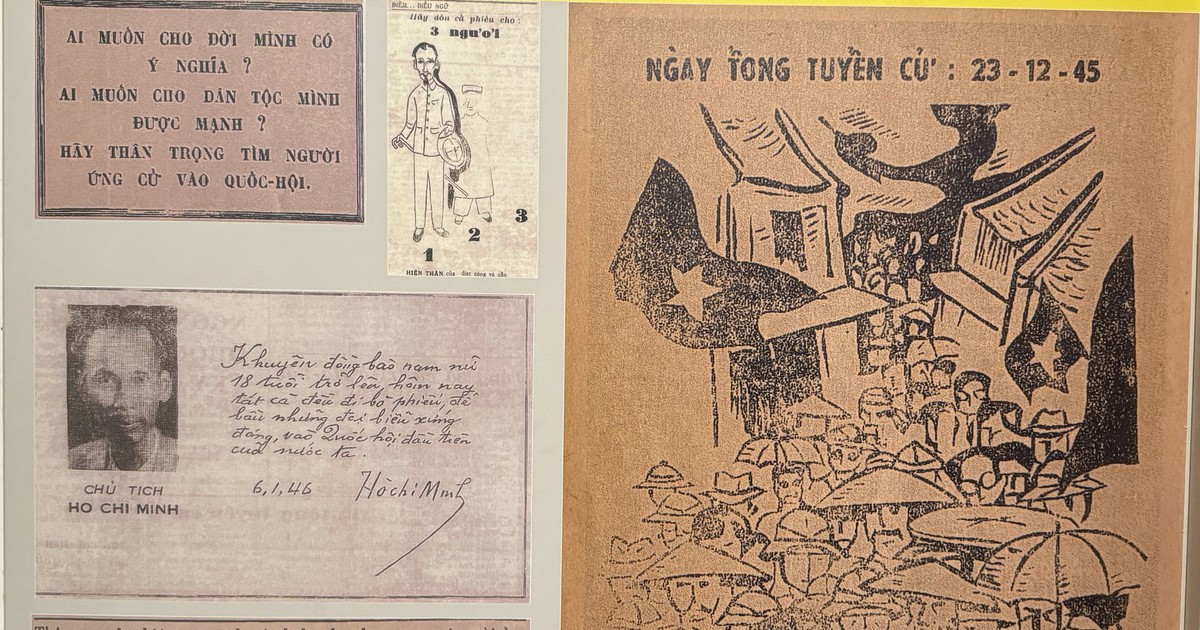 AI MUỐN CHO ĐỜI MÌNH CÓ
Ý NGHĨA ?
AI MUỐN CHO DÂN TỘC MÌNH
ĐƯỢC MẠNH ?
HÃY THÂN TRỌNG TÌM NGƯỜI
ỨNG CỬ VÀO QUỐC-HỘI.
Hãy dồn cả phiếu cho :
3 người
1
2
3
HIỆN THÂN của
Khuyên đồng bào nam nữ
18 tuổi trở lên, hôm nay
tất cả đều đi bỏ phiếu, để
bầu những đại biểu xứng
đáng, vào Quốc hội đầu tiên
của nước ta.
6,1,46 Hồ Chí Minh
CHỦ TỊCH
HO CHI MINH
NGAY TỔNG TUYỂN CỬ : 23 - 12 - 45